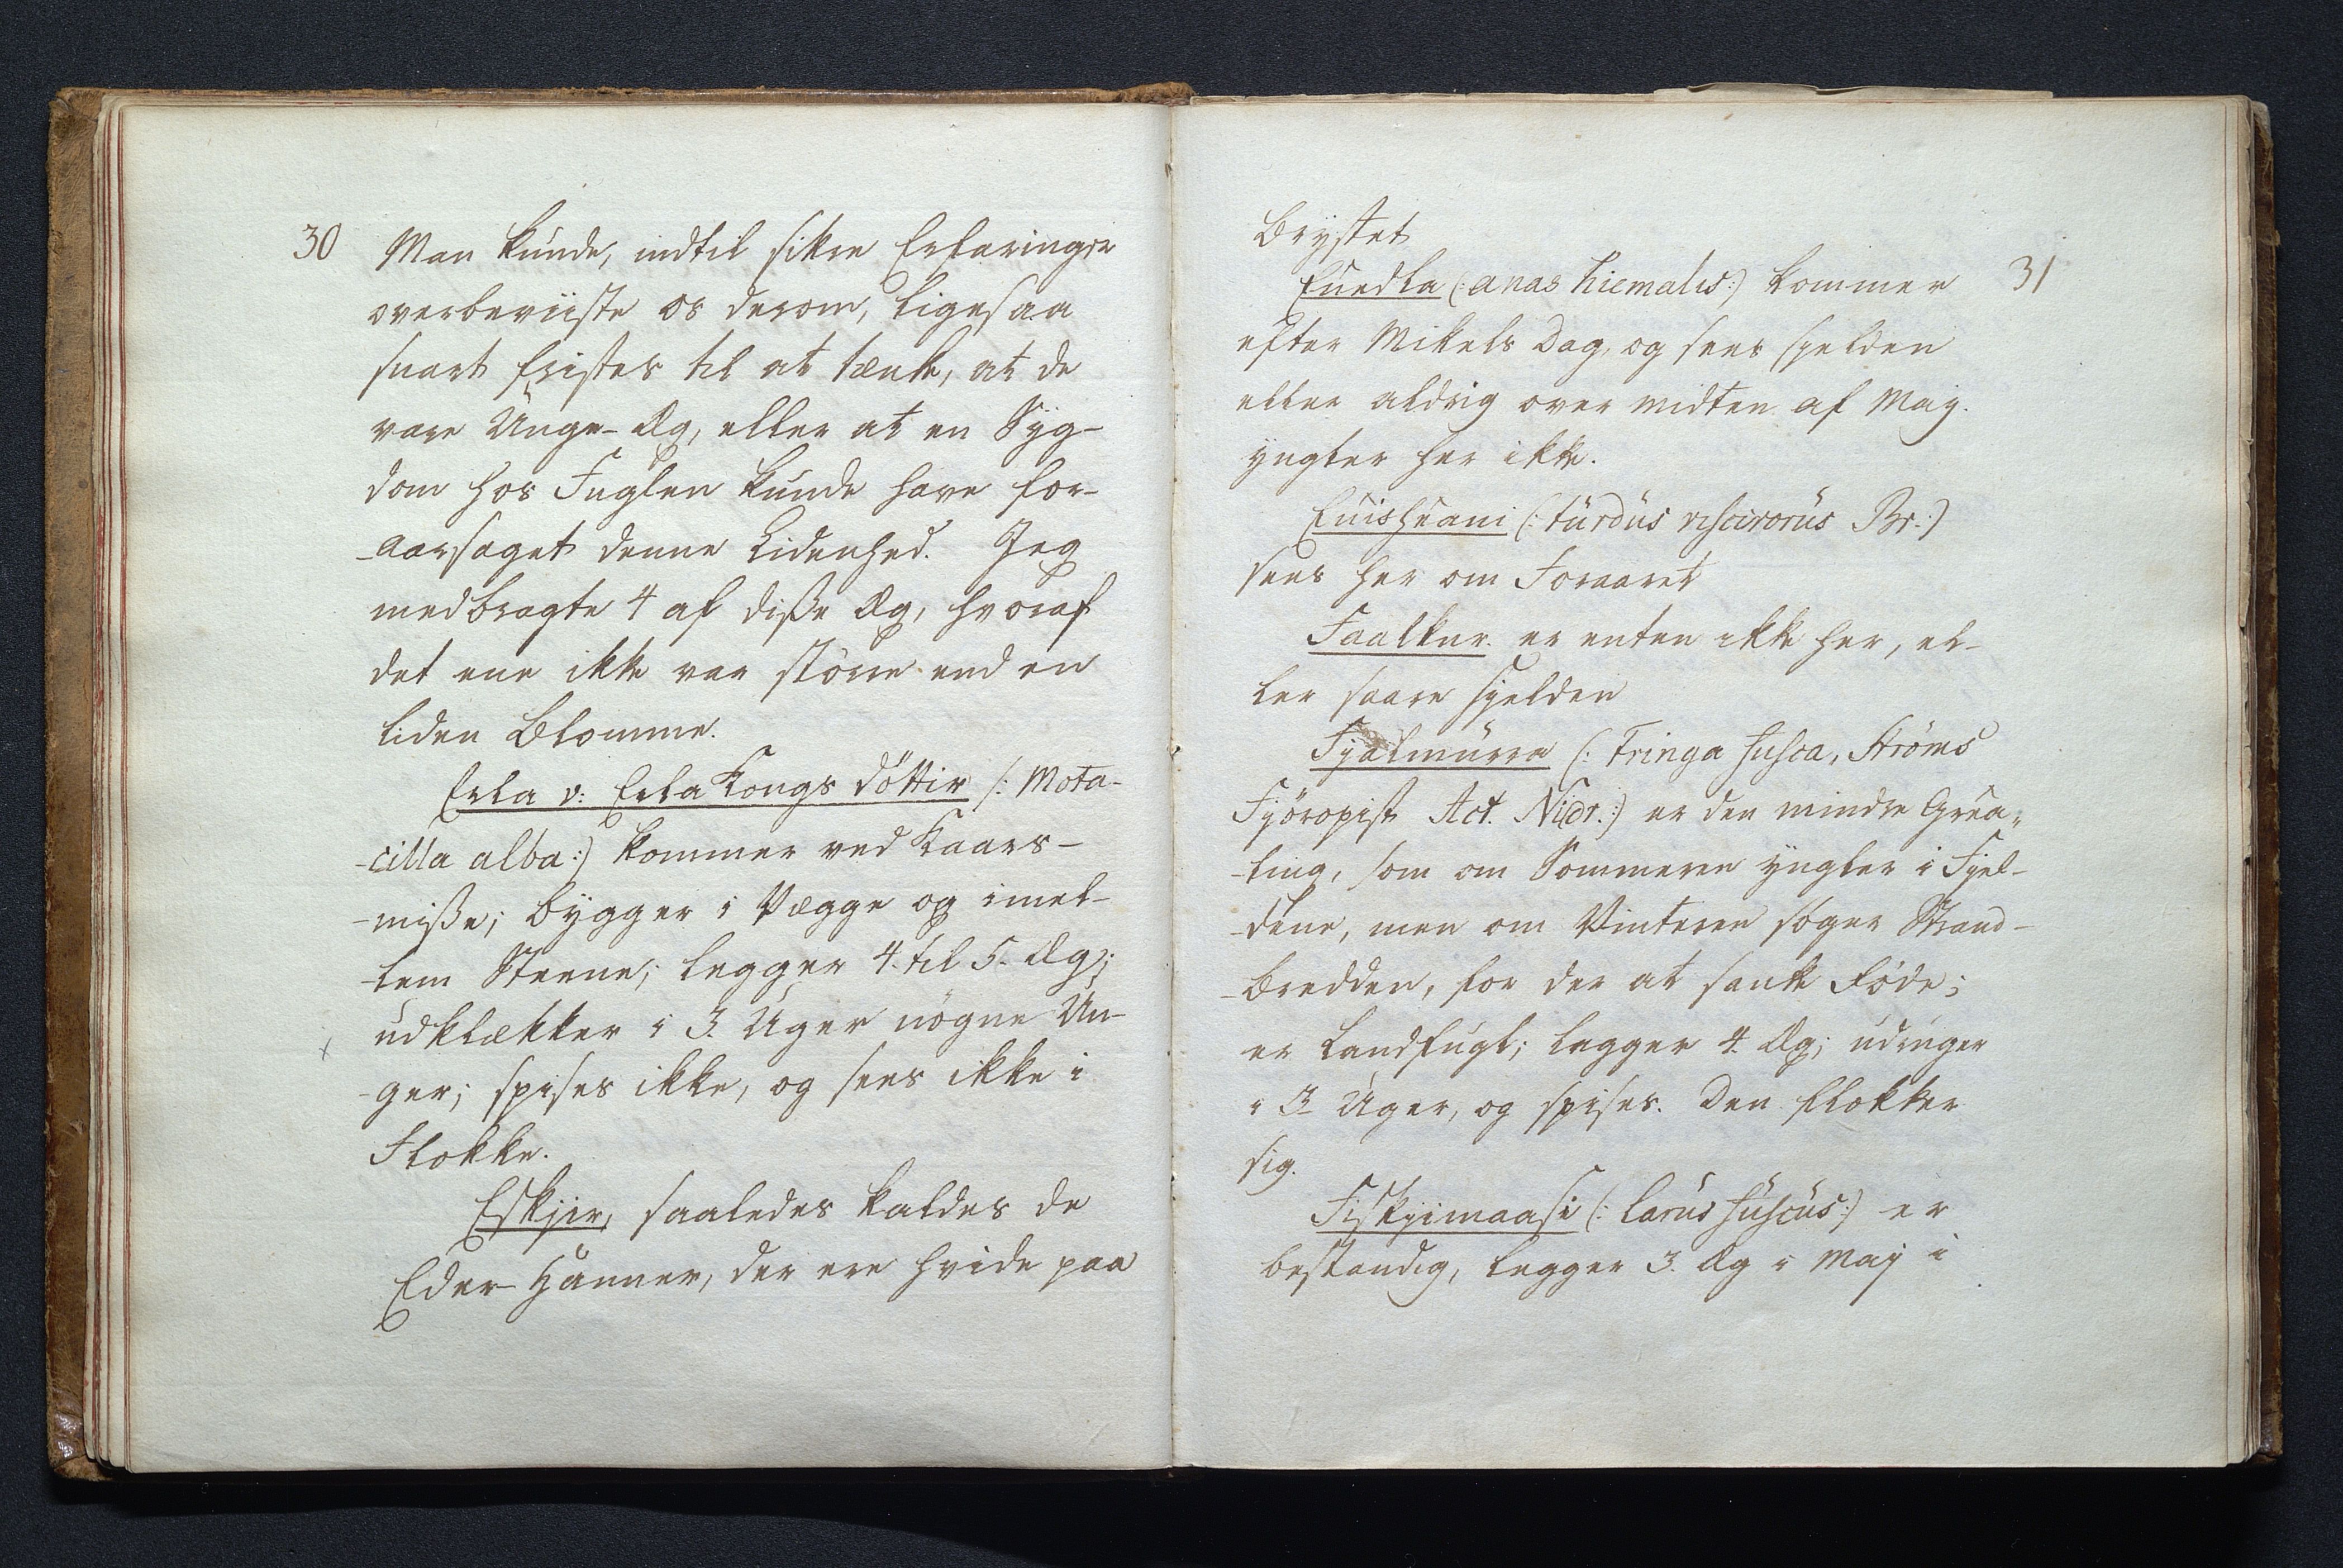 30
Man kunde, indtil sikre Erfaringer
overbeviiste os derom, ligesaa
snart fristes til at tænke, at de
vare Unge-Æg, eller at en Syg-
dom hos Fuglen kunde have for-
-aarsaget denne Lidenhed. Jeg
medbragte 4 af disse Æg, hvoraf
det ene ikke var större end en
liden Blomme.
Erla v: Erla Kongs döttir (: Mota-
-cilla alba:) kommer ved Kaars-
-misse; bygger i Vægge og imel-
-lem Steene; legger 4. til 5. Æg;
udklækker i 3. Uger nögne Un-
-ger; spises ikke, og sees ikke i
Flokke.
Eskjer, saaledes kaldes de
Eder-Hanner, der ere hvide paa
Brystet
31
(: anas hiemalis:) kommer
efter Mikels Dag, og sees sjelden
eller aldrig over midten af Maj.
yngler her ikke.
(: turdus viscivorus Br.:)
sees her om Foraaret
Faalkur. er enten ikke her, el-
ler saare sjelden
Fjalmurra (: Tringa fusca, Ströms
Act. Nidr.:) er den mindre Grea-
-ling, som om Sommeren yngler i Fjel-
-dene, men om Vinteren söger Strand-
-bredden, for der at sanke Föde;
er Landfugl; legger 4. Æg; udruger
i 3. Uger, og spises. Den flokker
sig.
Fiskjimaasi (: larus fuscus:) er
bestandig, legger 3. Æg i Maj i